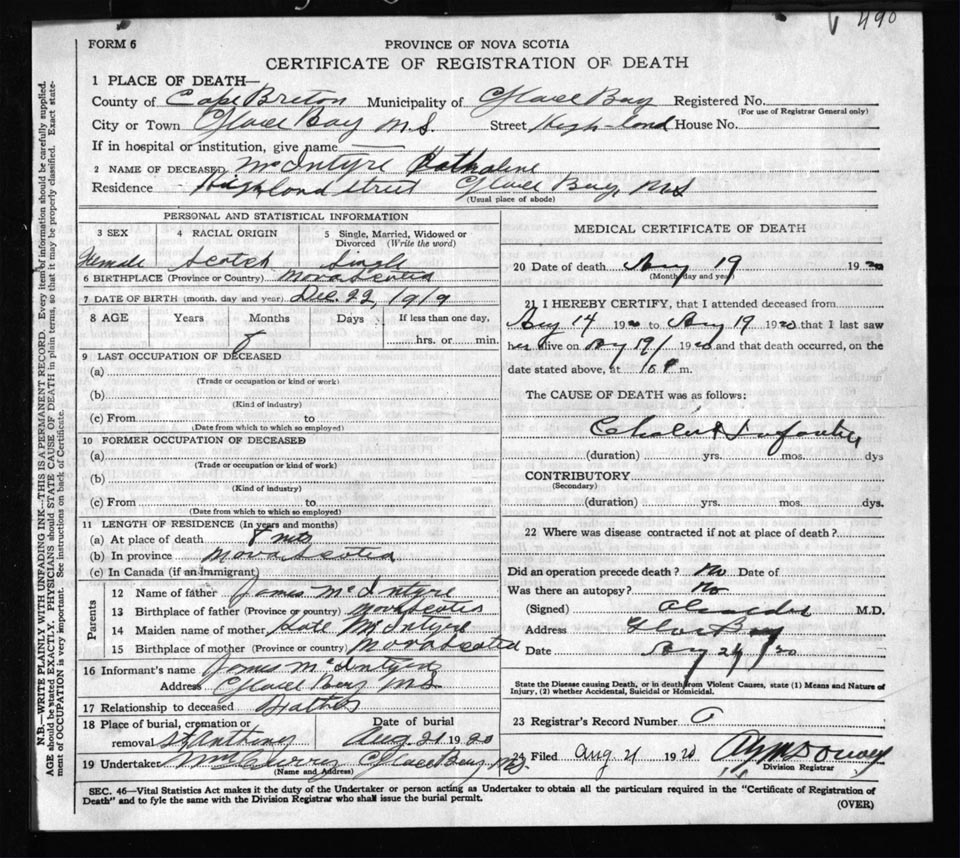 490
FORM 6
PROVINCE OF NOVA SCOTIA
CERTIFICATE OF REGISTRATION OF DEATH
1 PLACE OF DEATH—
County of Cape Breton Municipality of Glace Bay Registered No.
(For use of Registrar General only)
City or Town Glace Bay N.S. Street High-land House No.
If in hospital or institution, give name
2 NAME OF DECEASED McIntyre Katharine
Residence Highland Street Glace Bay, N.S
(Usual place of abode)
PERSONAL AND STATISTICAL INFORMATION
3 SEX 4 RACIAL ORIGIN 5 Single, Married, Widowed or Divorced (Write the word)
Female Scotch Single
6 BIRTHPLACE (Province or Country) Nova Scotia
7 DATE OF BIRTH (month, day and year) Dec. 22, 1919
8 AGE Years Months Days If less than one day,
8 hrs. or min.
9 LAST OCCUPATION OF DECEASED
(a)
(Trade or occupation or kind or work)
(b)
(Kind of industry)
(c) From to
(Date from which to which so employed)
10 FORMER OCCUPATION OF DECEASED
(a)
(Trade or occupation or kind of work)
(b)
(Kind of industry)
(c) From to
(Date from which to which so employed)
11 LENGTH OF RESIDENCE (In years and months)
(a) At place of death 8 mts
(b) In province Nova Scotia
(c) In Canada (if an immigrant)
Parents
12 Name of father James McIntyre
13 Birthplace of father (Province or country) Nova Scotia
14 Maiden name of mother Kate McIntyre
15 Birthplace of mother (Province or country) Nova Scotia
16 Informant's name James McIntyre
Address Glace Bay N.S
17 Relationship to deceased Father
18 Place of burial, cremation or Date of burial
removal St Anthony Aug. 21 1920
19 Undertaker Glace Bay, N.S.
(Name and Address)
MEDICAL CERTIFICATE OF DEATH
20 Date of death Aug 19 1920
(Month day and year)
21 I HEREBY CERTIFY, that I attended deceased from
Aug 14 1920 to Aug 19 1920 that I last saw
her alive on Aug 19 1920 and that death occurred, on the
date stated above, at 10 P m.
The CAUSE OF DEATH was as follows:
Cholera Infantum
(duration) yrs. mos. dys
CONTRIBUTORY
(Secondary)
(duration) yrs. mos. dys.
22 Where was disease contracted if not at place of death?
Did an operation precede death? No Date of
Was there an autopsy? No
(Signed) M.D.
Address Glace Bay
Date Aug 20
State the Disease causing Death, or in deaths from Violent Causes, state (1) Means and Nature of
Injury, (2) whether Accidental, Suicidal or Homicidal.
23 Registrar's Record Number
24 Filed Aug 21 1920
Division Registrar
SEC. 46—Vital Statistics Act makes it the duty of the Undertaker or person acting as Undertaker to obtain all the particulars required in the "Certificate of Registration of
Death" and to fyle the same with the Division Registrar who shall issue the burial permit.
(OVER)
N.B.—WRITE PLAINLY WITH UNFADING INK—THIS IS A PERMANENT RECORD. Every item of information should be carefully supplied.
AGE should be stated EXACTLY. PHYSICIANS should STATE CAUSE OF DEATH in plain terms, so that it may be properly classified. Exact state-
ment of OCCUPATION is very important. See instructions on back of Certificate.